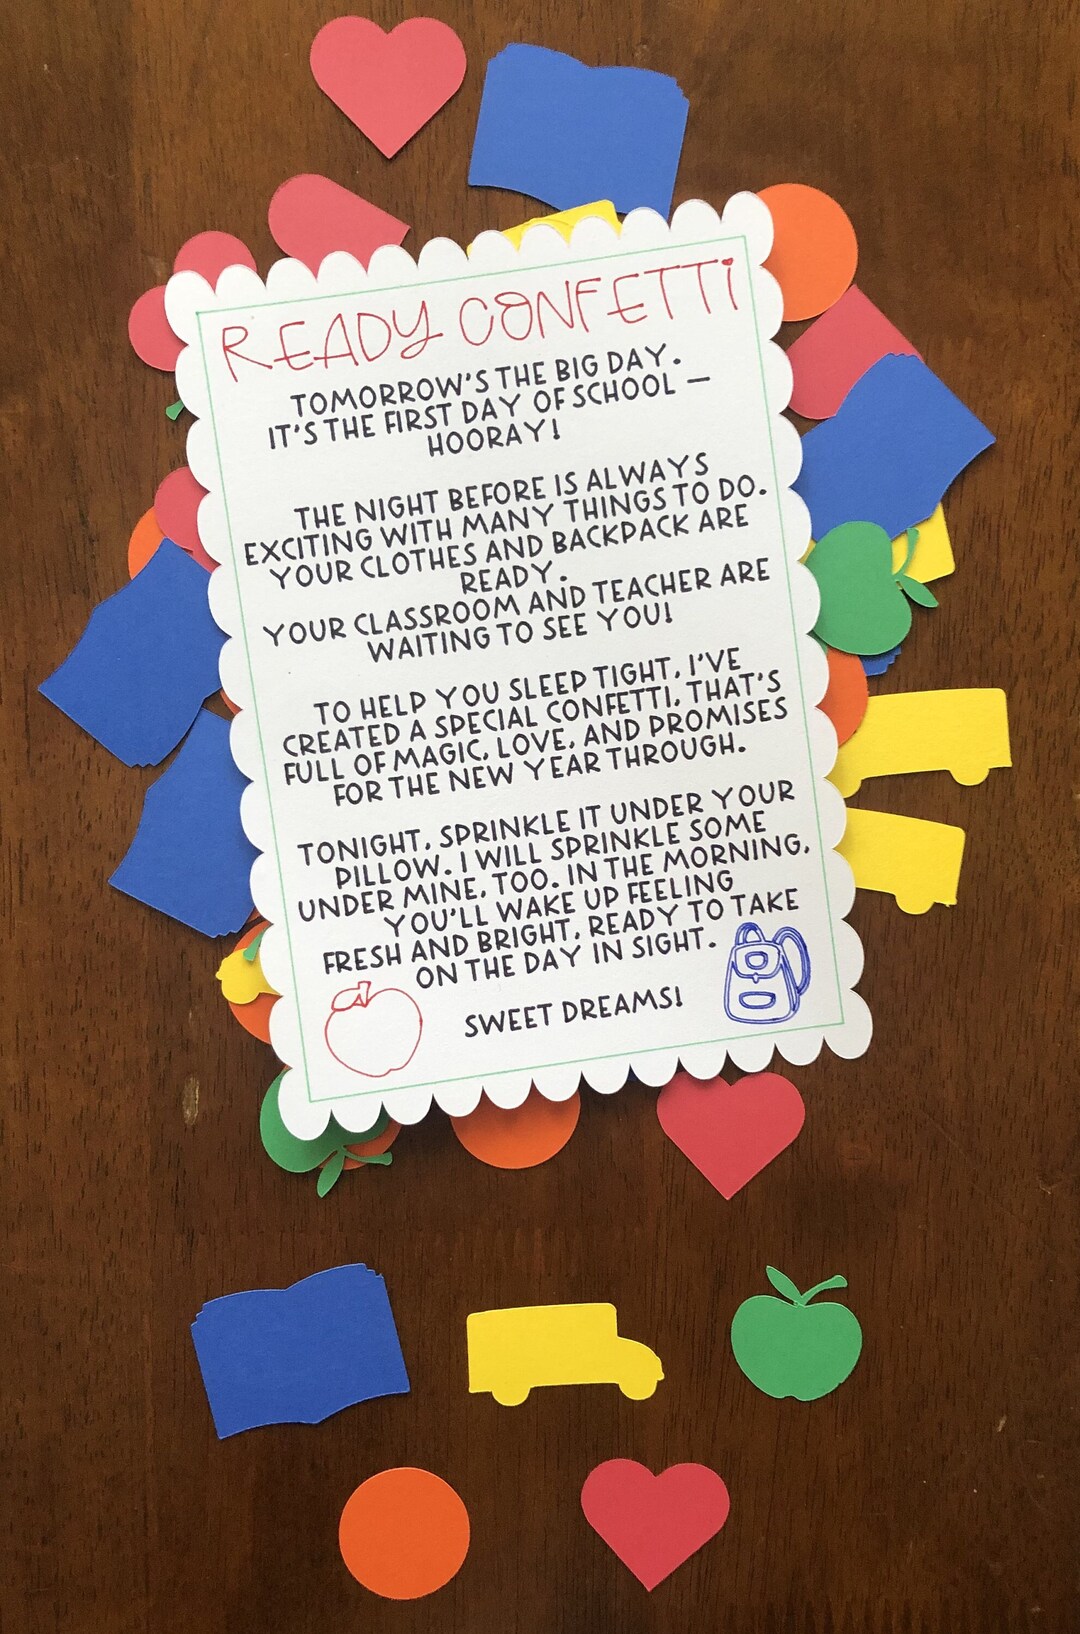 READY CONFETTI
TOMORROW'S THE BIG DAY.
IT'S THE FIRST DAY OF SCHOOL —
HOORAY!
THE NIGHT BEFORE IS ALWAYS
EXCITING WITH MANY THINGS TO DO.
YOUR CLOTHES AND BACKPACK ARE
READY.
YOUR CLASSROOM AND TEACHER ARE
WAITING TO SEE YOU!
TO HELP YOU SLEEP TIGHT, I'VE
CREATED A SPECIAL CONFETTI, THAT'S
FULL OF MAGIC, LOVE, AND PROMISES
FOR THE NEW YEAR THROUGH.
TONIGHT, SPRINKLE IT UNDER YOUR
PILLOW. I WILL SPRINKLE SOME
UNDER MINE, TOO. IN THE MORNING,
YOU'LL WAKE UP FEELING
FRESH AND BRIGHT, READY TO TAKE
ON THE DAY IN SIGHT.
SWEET DREAMS!